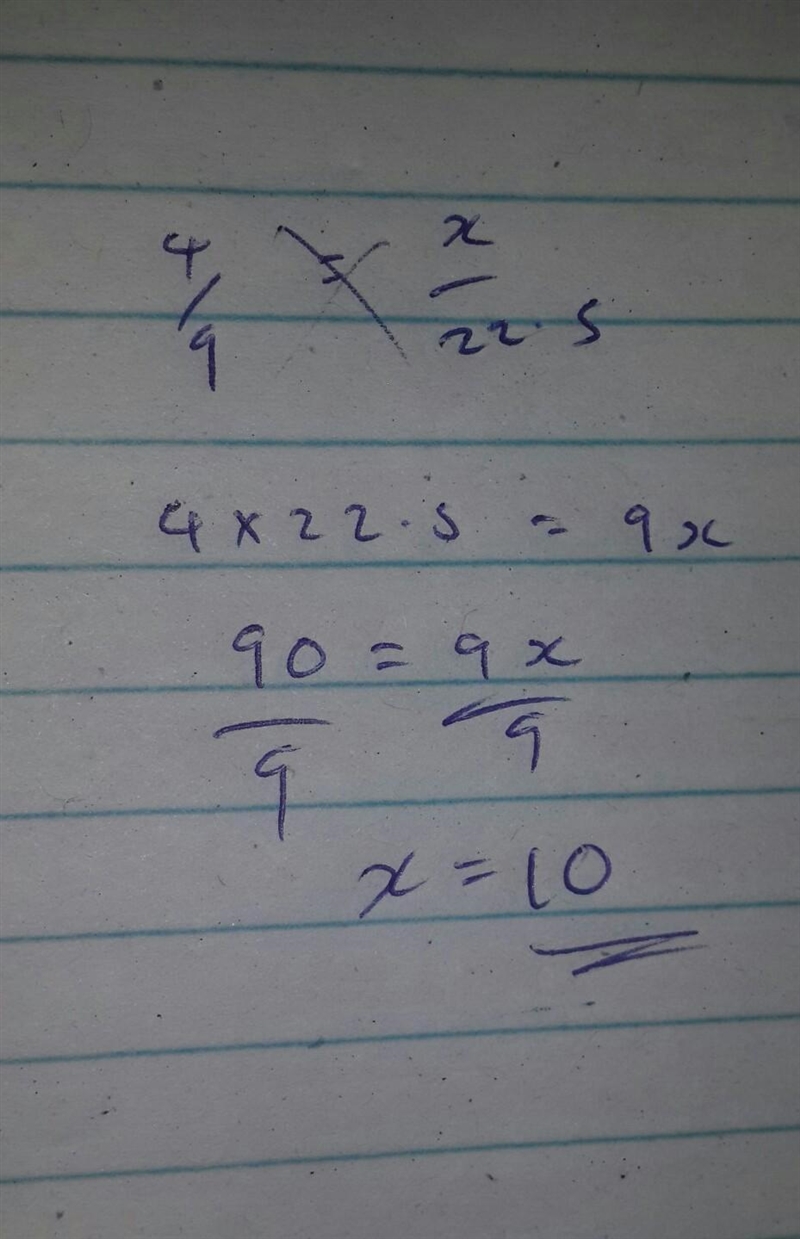 4/9 = x/22.5
4 x 22.5 = 9x
90/9 = 9x/9
x = 10